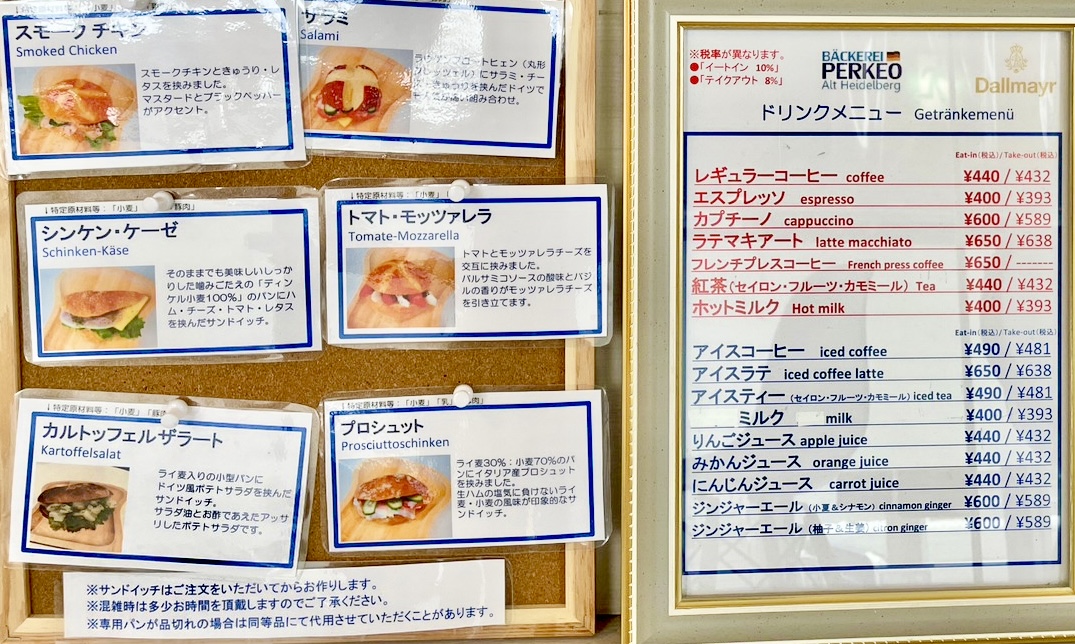 ↓特定原材料等：「小麦」
スモークチキン
Smoked Chicken
スモークチキンときゅうり・レ
タスを挟みました。
マスタードとブラックペッパー
がアクセント。
サラミ
Salami
(丸形
にサラミ・チー
を挟んだドイツで
組み合わせ。
↓特定原材料等：「小麦」 豚肉」
シンケン・ケーゼ
Schinken-Käse
そのままでも美味しいしっか
りした噛みごたえの「ディン
ケル小麦100%」のパンにハ
ム・チーズ・トマト・レタス
を挟んだサンドイッチ。
↓特定原材料等：「小麦」
トマト・モッツァレラ
Tomate-Mozzarella
トマトとモッツァレラチーズを
交互に挟みました。
バルサミコソースの酸味とバジ
ルの香りがモッツァレラチーズ
を引き立てます。
↓特定原材料等：「小麦」「豚肉
カルトッフェルザラート
Kartoffelsalat
ライ麦入りの小型パンに
ドイツ風ポテトサラダを挟んだ
サンドイッチ。
サラダ油とお酢であえたアッサ
リしたポテトサラダです。
↓特定原材料等：「小麦」「乳」 肉」
プロシュット
Prosciuttoschinken
ライ麦30%：小麦70%のパ
ンにイタリア産プロシュット
を挟みました。
生ハムの塩気に負けないライ
麦・小麦の風味が印象的なサ
ンドイッチ。
※サンドイッチはご注文をいただいてからお作りします。
※混雑時は多少お時間を頂戴しますのでご了承ください。
※専用パンが品切れの場合は同等品にて代用させていただくことがあります。
※税率が異なります。
●「イートイン 10%」
●「テイクアウト 8%」
BÄCKEREI
PERKEO
Alt Heidelberg
Dallmayr
ドリンクメニュー Getränkemenü
Eat-in(税込)/Take-out(税込)
レギュラーコーヒー coffee ¥440 / ¥432
エスプレッソ espresso ¥400 / ¥393
カプチーノ cappuccino ¥600 / ¥589
ラテマキアート latte macchiato ¥650 / ¥638
フレンチプレスコーヒー French press coffee ¥650 / -------
紅茶(セイロン・フルーツ・カモミール) Tea ¥440 / ¥432
ホットミルク Hot milk ¥400 / ¥393
Eat-in(税込)/Take-out(税込)
アイスコーヒー iced coffee ¥490 / ¥481
アイスラテ iced coffee latte ¥650 / ¥638
アイスティー (セイロン・フルーツ・カモミール) iced tea ¥490 / ¥481
ミルク milk ¥400 / ¥393
りんごジュース apple juice ¥440 / ¥432
みかんジュース orange juice ¥440 / ¥432
にんじんジュース carrot juice ¥440 / ¥432
ジンジャーエール (小夏&シナモン) cinnamon ginger ¥600 / ¥589
ジンジャーエール (柚子&生姜) citron ginger ¥600 / ¥589